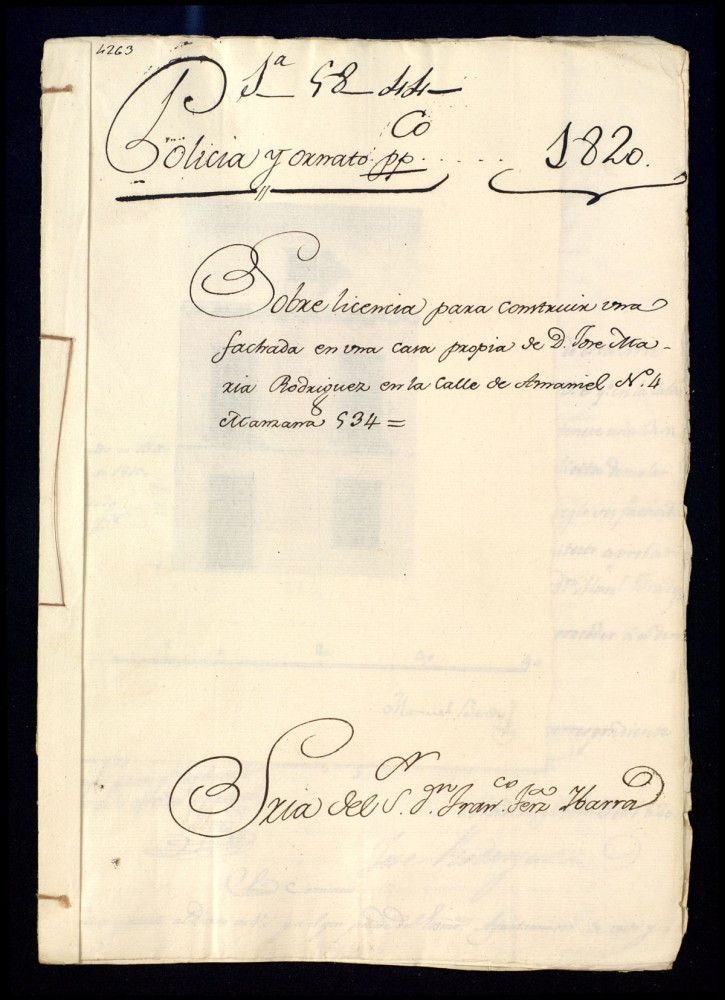 4263
1ª 58 44
Policia y ornato pp.co ...... 1820.
Sobre licencia para construir vna
fachada en vna casa propia de D. Jose Ma-
ria Rodriguez en la Calle de Amaniel N.º 4
Manzana 534 =
Sria del S.N dn Fran.co Ferz Ybarra